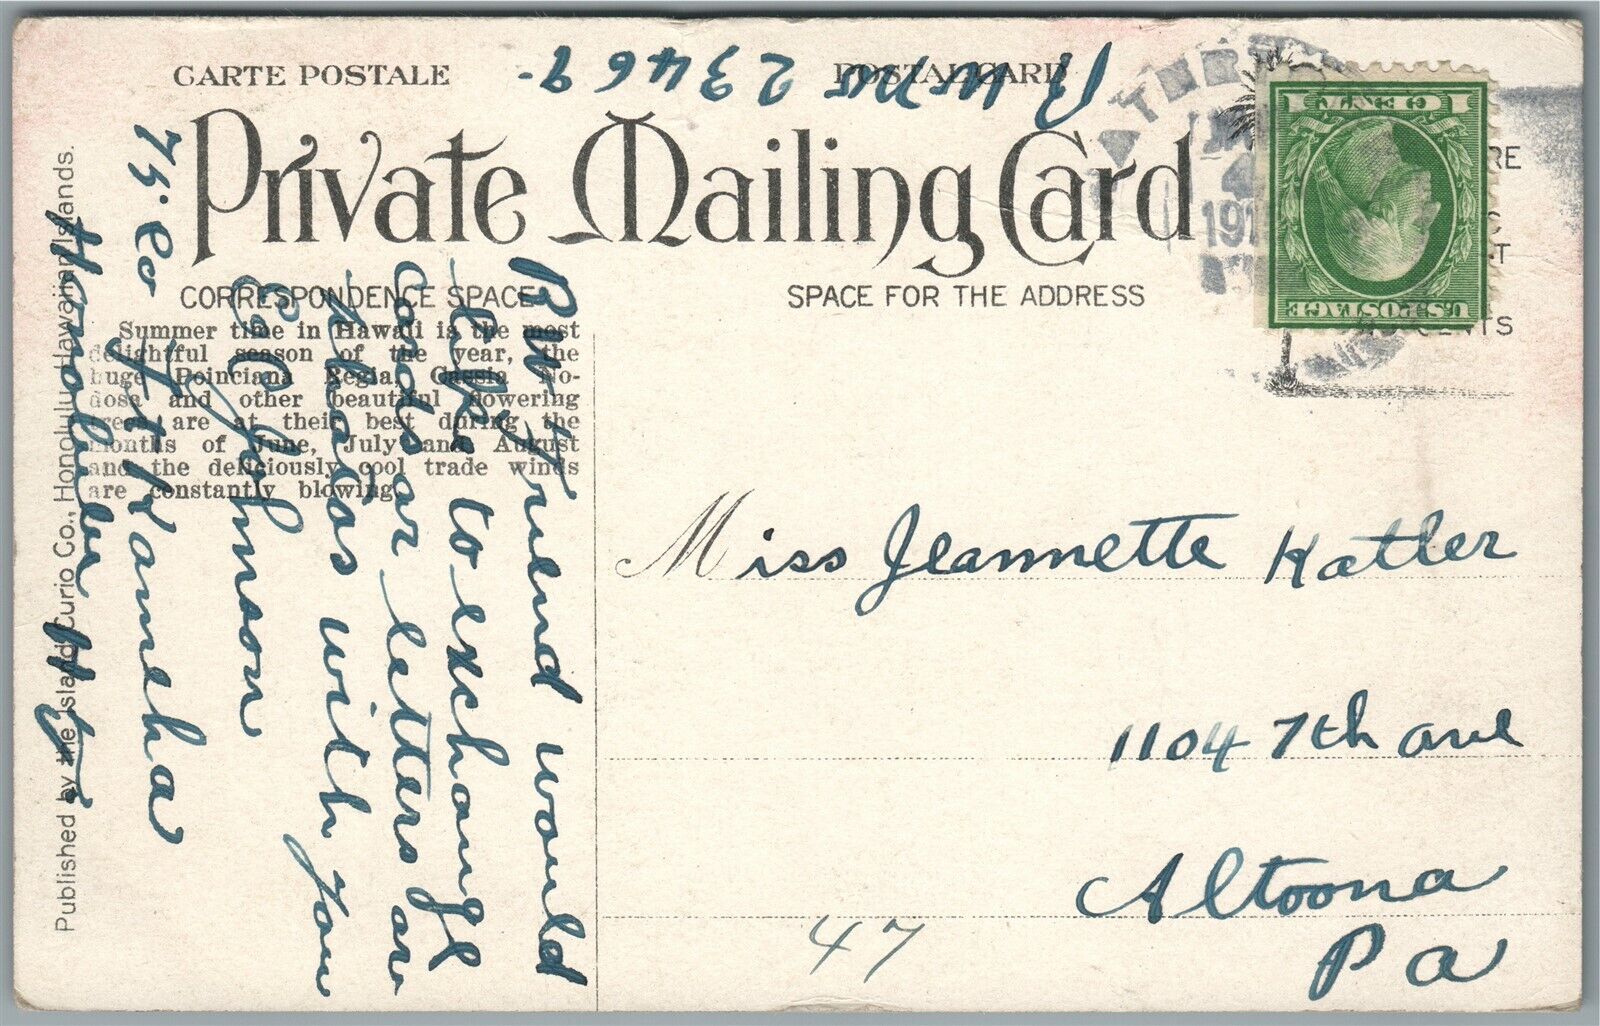 CARTE POSTALE
POSTAL CARD
23469
Private Mailing Card
CORRESPONDENCE SPACE
SPACE FOR THE ADDRESS
Summer time in Hawaii is the most
delightful season of the year, the
huge Poinciana Regia, Cassia No-
dosa and other beautiful flowering
trees are at their best during the
months of June, July and August
and the deliciously cool trade winds
are constantly blowing.
Published by the Island Curio Co., Honolulu, Hawaiian Islands.
friend would
like to exchange
cards or letters or
photos with you
E C Johnson
75. Co Ft Kameha
Honolulu H
Miss Jeannette Katler
1104 7th ave
Altoona
Pa
47
U.S. POSTAGE
1 CENT 1
JAN
4
191
RE
C
T
CENTS